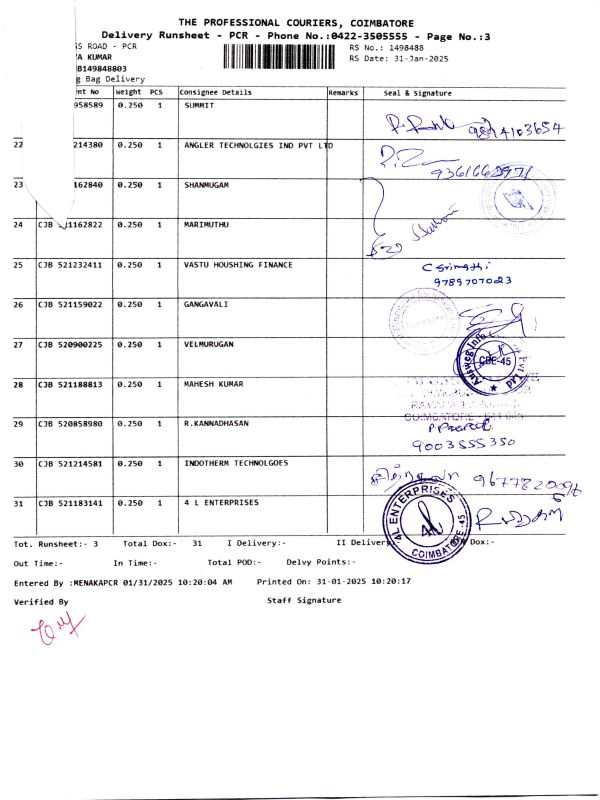 THE PROFESSIONAL COURIERS, COIMBATORE
Delivery Runsheet - PCR - Phone No.:0422-3505555 - Page No.:3
SS ROAD - PCR
RS No.: 1498488
A KUMAR
RS Date: 31-Jan-2025
B149848803
g Bag Delivery
nt No Weight PCS Consignee Details Remarks Seal & Signature
958589 0.250 1 SUMMIT
4103654
22 214380 0.250 1 ANGLER TECHNOLGIES IND PVT LTD
9361662971
23 162840 0.250 1 SHANMUGAM
24 CJB 521162822 0.250 1 MARIMUTHU
25 CJB 521232411 0.250 1 VASTU HOUSHING FINANCE
97897070023
26 CJB 521159022 0.250 1 GANGAVALI
27 CJB 520900225 0.250 1 VELMURUGAN
CBE-45
28 CJB 521188813 0.250 1 MAHESH KUMAR
COIMBATORE
29 CJB 520858980 0.250 1 R.KANNADHASAN
9003555350
30 CJB 521214581 0.250 1 INDOTHERM TECHNOLGOES
9677820096
31 CJB 521183141 0.250 1 4 L ENTERPRISES
4L ENTERPRISES
COIMBATORE-45
Tot. Runsheet:- 3 Total Dox:- 31 I Delivery:- II Delivery Dox:-
Out Time:- In Time:- Total POD:- Delvy Points:-
Entered By :MENAKAPCR 01/31/2025 10:20:04 AM Printed On: 31-01-2025 10:20:17
Verified By Staff Signature